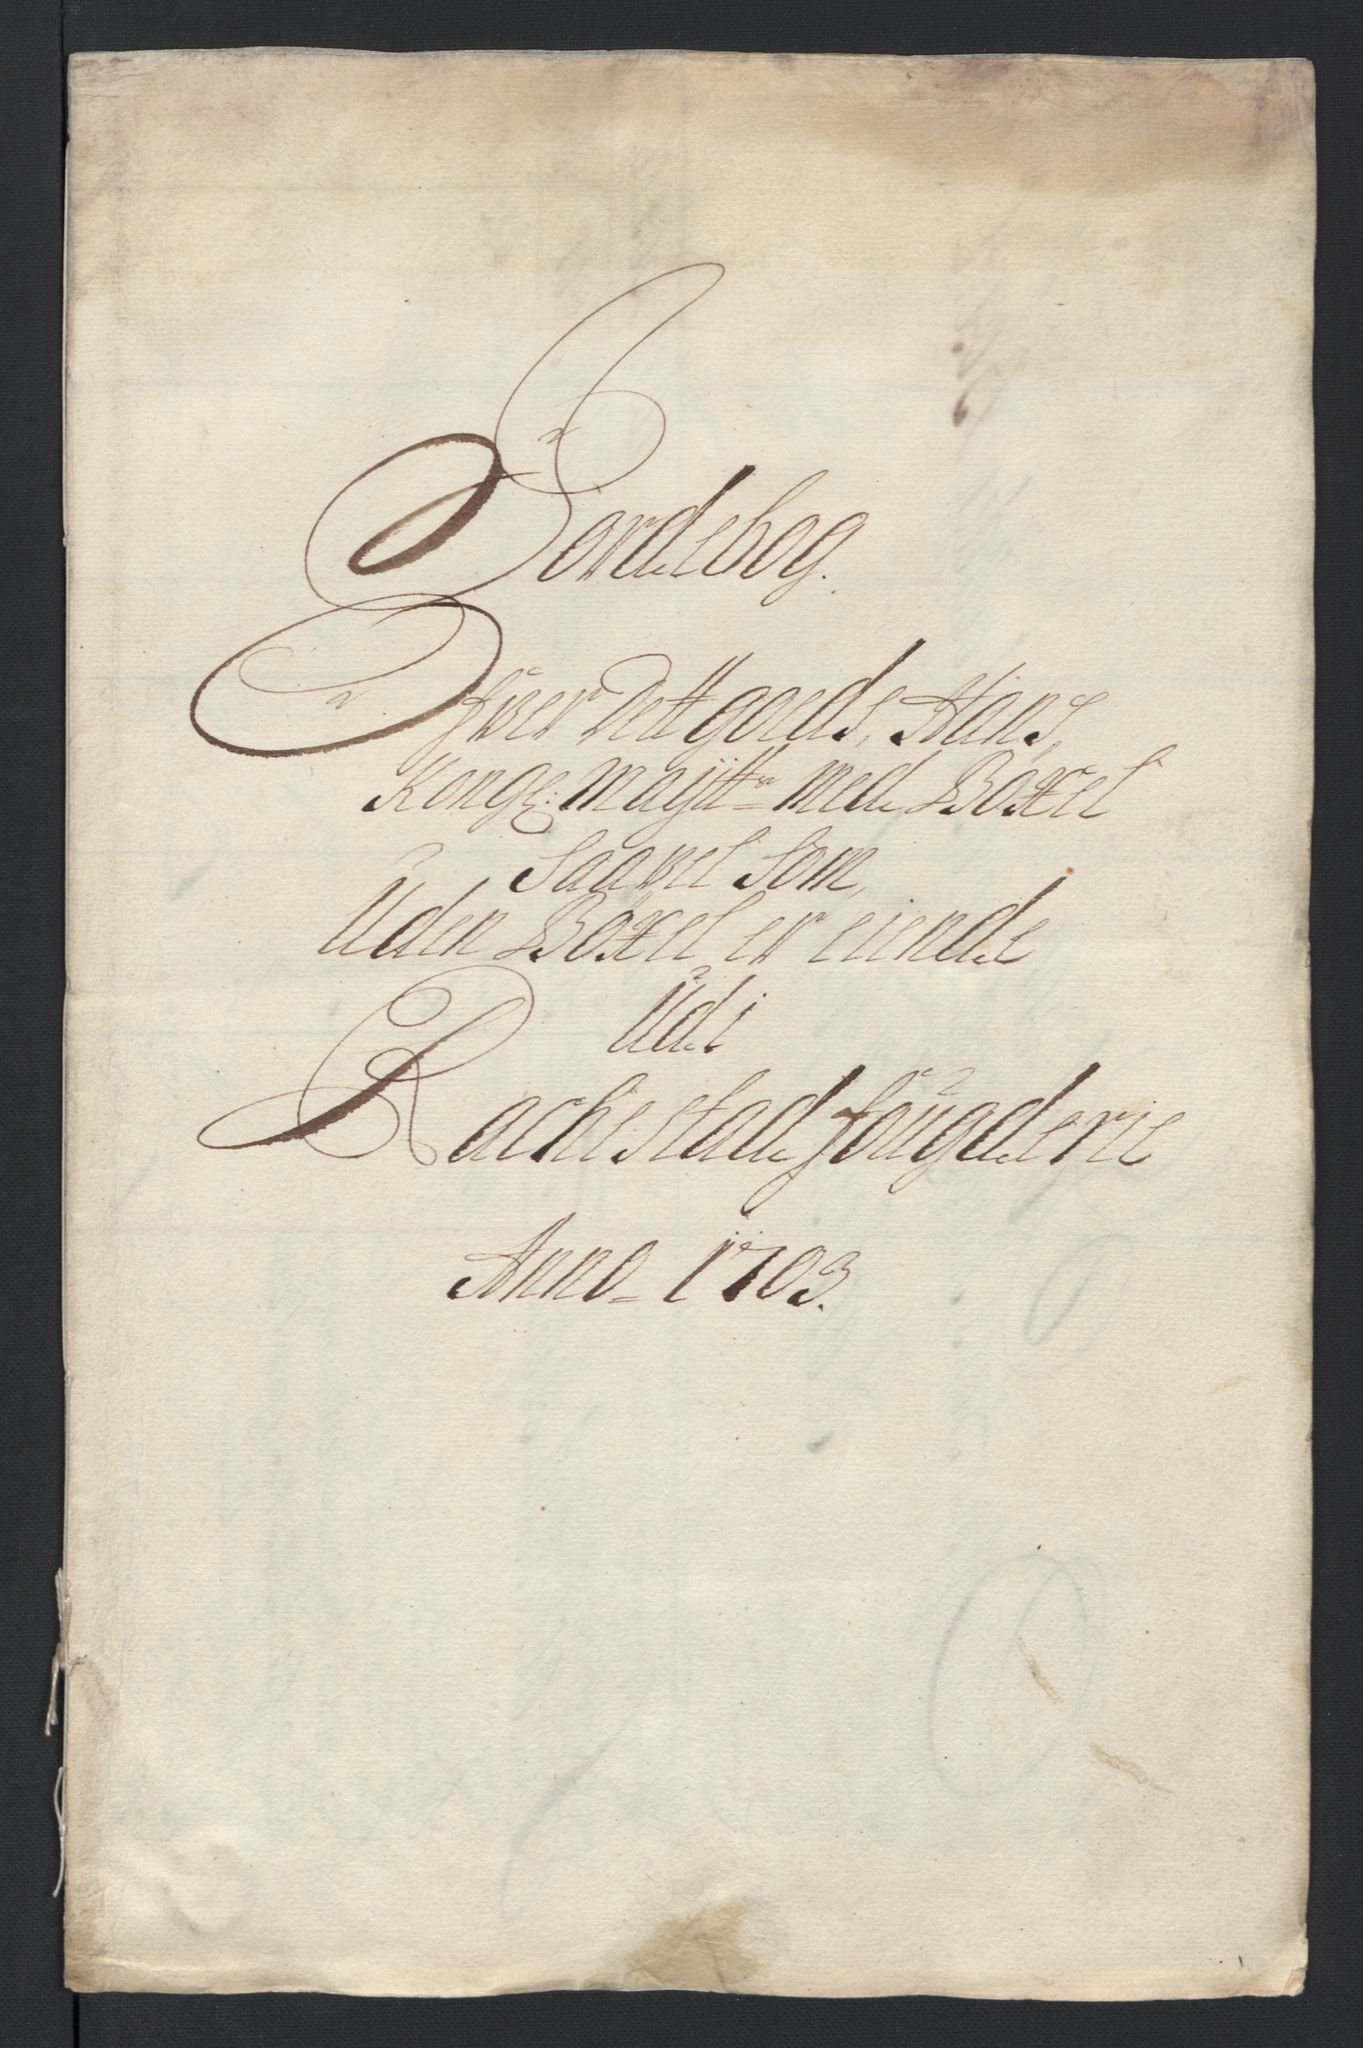 Jordebog.
Ofver Dett goeds, Hans,
Kongl: Maÿttz med Böxel
Saavel Som,
Uden Böxel er eiende
Udi
Rachestad fougderie
Anno 1703.